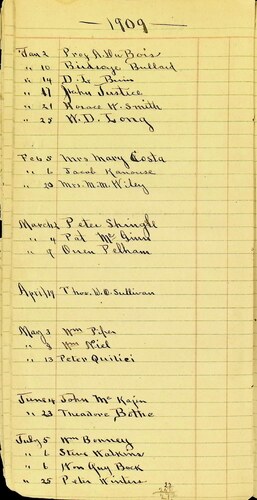 — 1909 —
Jan 2 Prey A. Du Bois
" 10 Birdseye Bullard
" 14 D. L. Bunn
" 17 John Justice
" 21 Horace W. Smith
" 25 W. D. Long
Feb 5 Mrs Mary Costa
" 6 Jacob Kanouse
" 20 Mrs. M. M. Wiley
March 2 Peter Shingle
" 4 Pat Mc Ginn
" 9 Owen Pelham
April 19 Thos. D. O. Sullivan
May 3 Wm Piper
" 9 Wm Niel
" 13 Peter Quilici
June 4 John Mc
" 23 Theodore Bothe
July 5 Wm Bonney
" 6 Steve Watkins
" 6 Won Guy Bock
" 25 Peter Winters
22